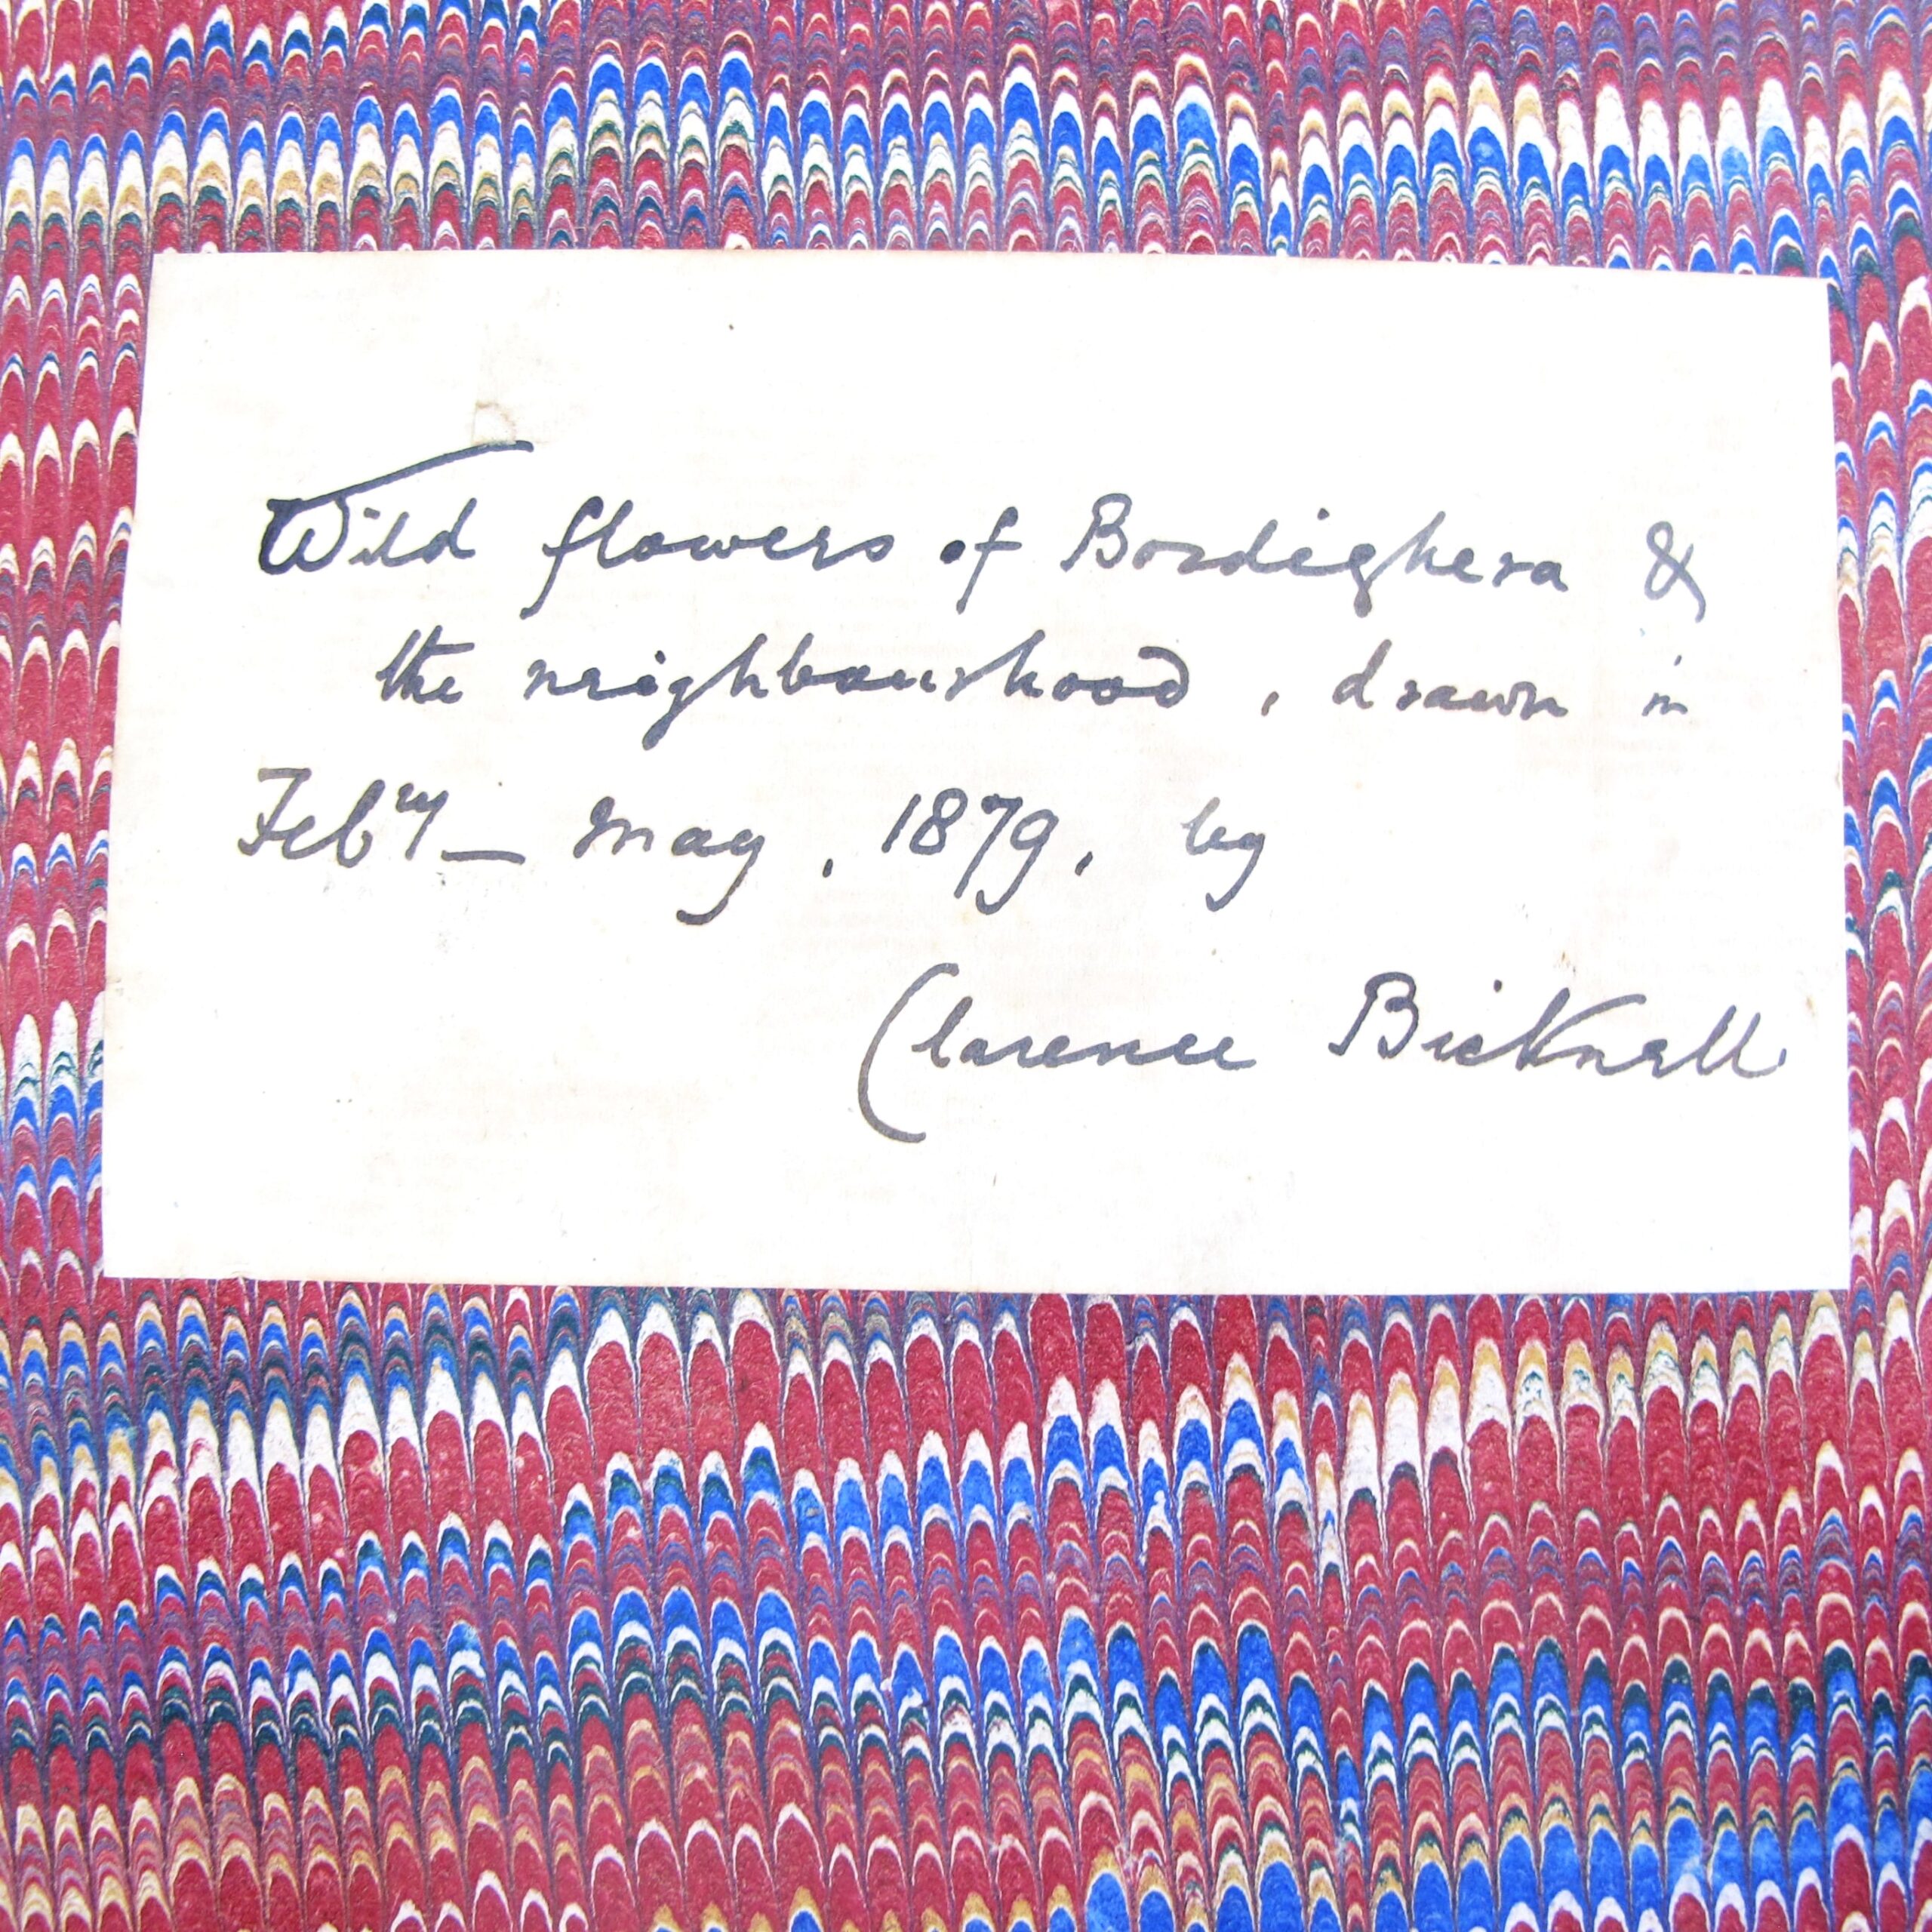 Wild flowers of Bordighera &
the neighbourhood, drawn in
Feb^ry – May, 1879, by
Clarence Bicknell